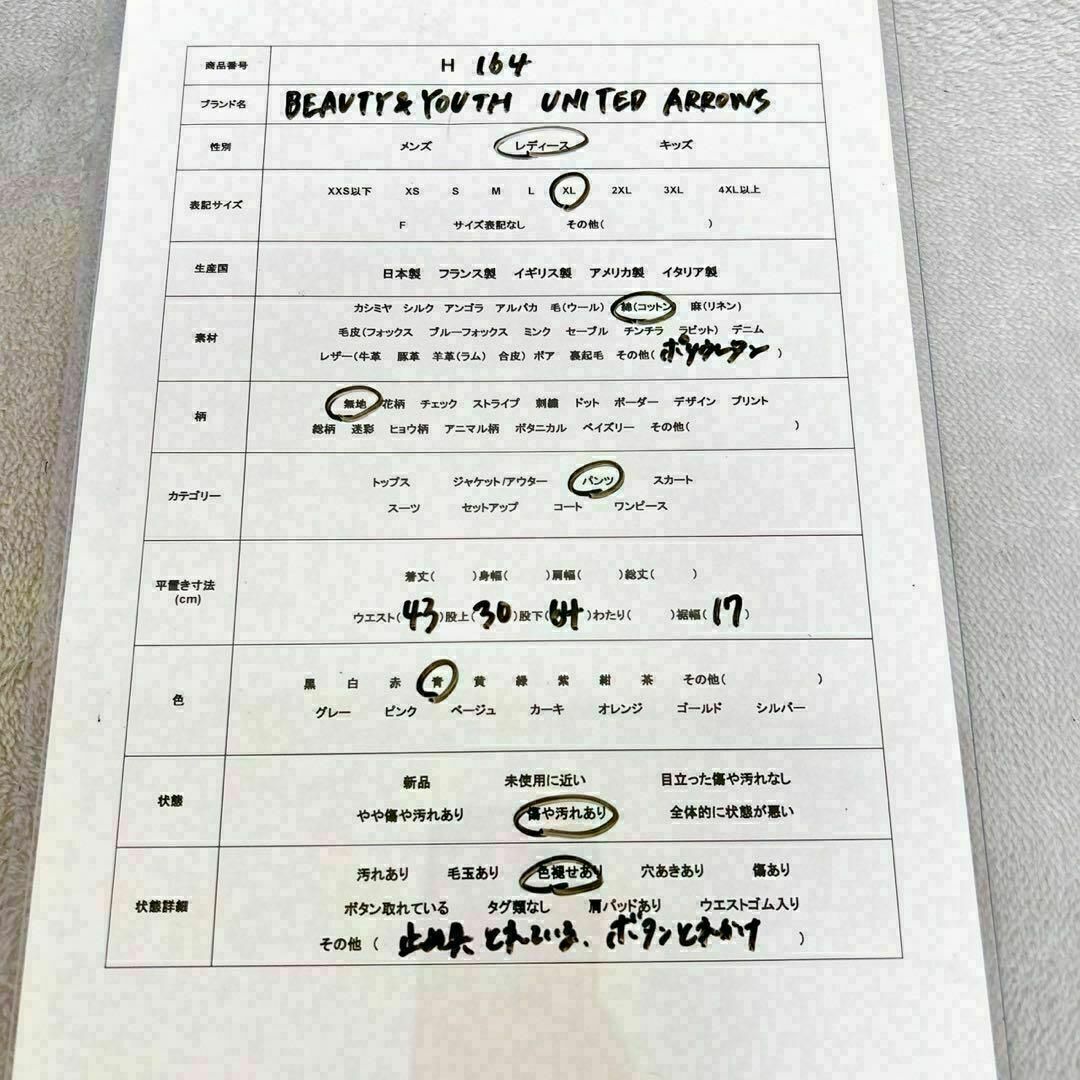 商品番号 H 164
ブランド名 BEAUTY&YOUTH UNITED ARROWS
性別 メンズ レディース キッズ
表記サイズ XXS以下 XS S M L XL 2XL 3XL 4XL以上
F サイズ表記なし その他( )
生産国 日本製 フランス製 イギリス製 アメリカ製 イタリア製
素材 カシミヤ シルク アンゴラ アルパカ 毛(ウール) 綿(コットン) 麻(リネン)
毛皮(フォックス ブルーフォックス ミンク セーブル チンチラ ラビット) デニム
レザー(牛革 豚革 羊革(ラム) 合皮) ボア 裏起毛 その他( ポリウレタン )
柄 無地 花柄 チェック ストライプ 刺繍 ドット ボーダー デザイン プリント
総柄 迷彩 ヒョウ柄 アニマル柄 ボタニカル ペイズリー その他( )
カテゴリー トップス ジャケット/アウター パンツ スカート
スーツ セットアップ コート ワンピース
平置き寸法 (cm) 着丈( )身幅( )肩幅( )総丈( )
ウエスト(43)股上(30)股下(64)わたり( )裾幅(17)
色 黒 白 赤 青 黄 緑 紫 紺 茶 その他( )
グレー ピンク ベージュ カーキ オレンジ ゴールド シルバー
状態 新品 未使用に近い 目立った傷や汚れなし
やや傷や汚れあり 傷や汚れあり 全体的に状態が悪い
状態詳細 汚れあり 毛玉あり 色褪せあり 穴あきあり 傷あり
ボタン取れている タグ類なし 肩パッドあり ウエストゴム入り
その他 ( 止め具とれている、ボタンとれかけ )